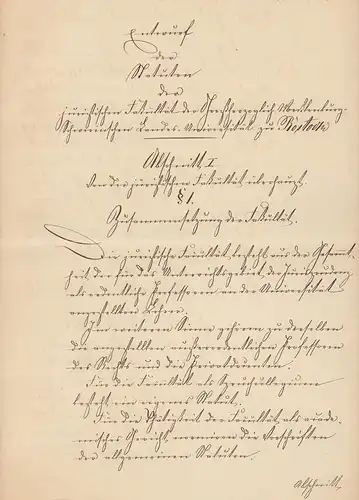 Entwurf
der
Statuten
der
juristischen Fakultät der Großherzoglich Mecklenburg-
Schwerinschen Landes-Universität zu Rostock
Abschnitt I
Von der juristischen Fakultät überhaupt.
§ 1.
Zusammensetzung der Fakultät.
Die juristische Fakultät besteht aus der Gesammt-
heit der für das Unterrichtsgebiet der Jurisprudenz
als ordentliche Professoren an der Universität
angestellten Lehrer.
Im weiteren Sinne gehören zu derselben
die angestellten außerordentlichen Professoren
des Rechts und die Privatdocenten.
Für die Fakultät als Spruchcollegium
besteht ein eigenes Statut.
Für die Thätigkeit der Fakultät als akade-
misches Gericht, normieren die Vorschriften
der allgemeinen Statuten.
Abschnitt